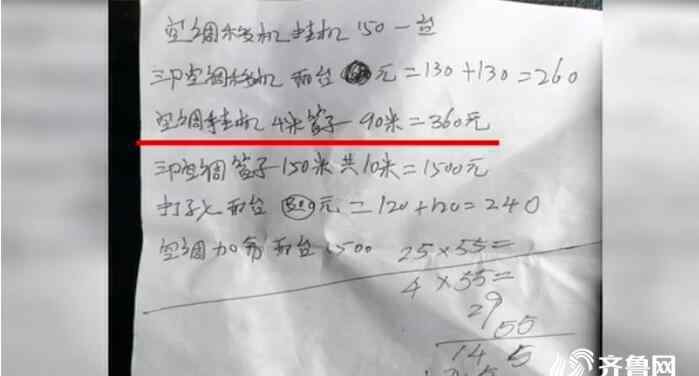 空调移机挂机150一台
三P空调移机 两台 元=130+130=260
空调挂机4米管子一90米=360元
三P空调管子150米共10米=1500元
打孔 两台 元=120+120=240
空调加 两台 500
25×55=
4×55=
29
55
14 5
齐鲁网